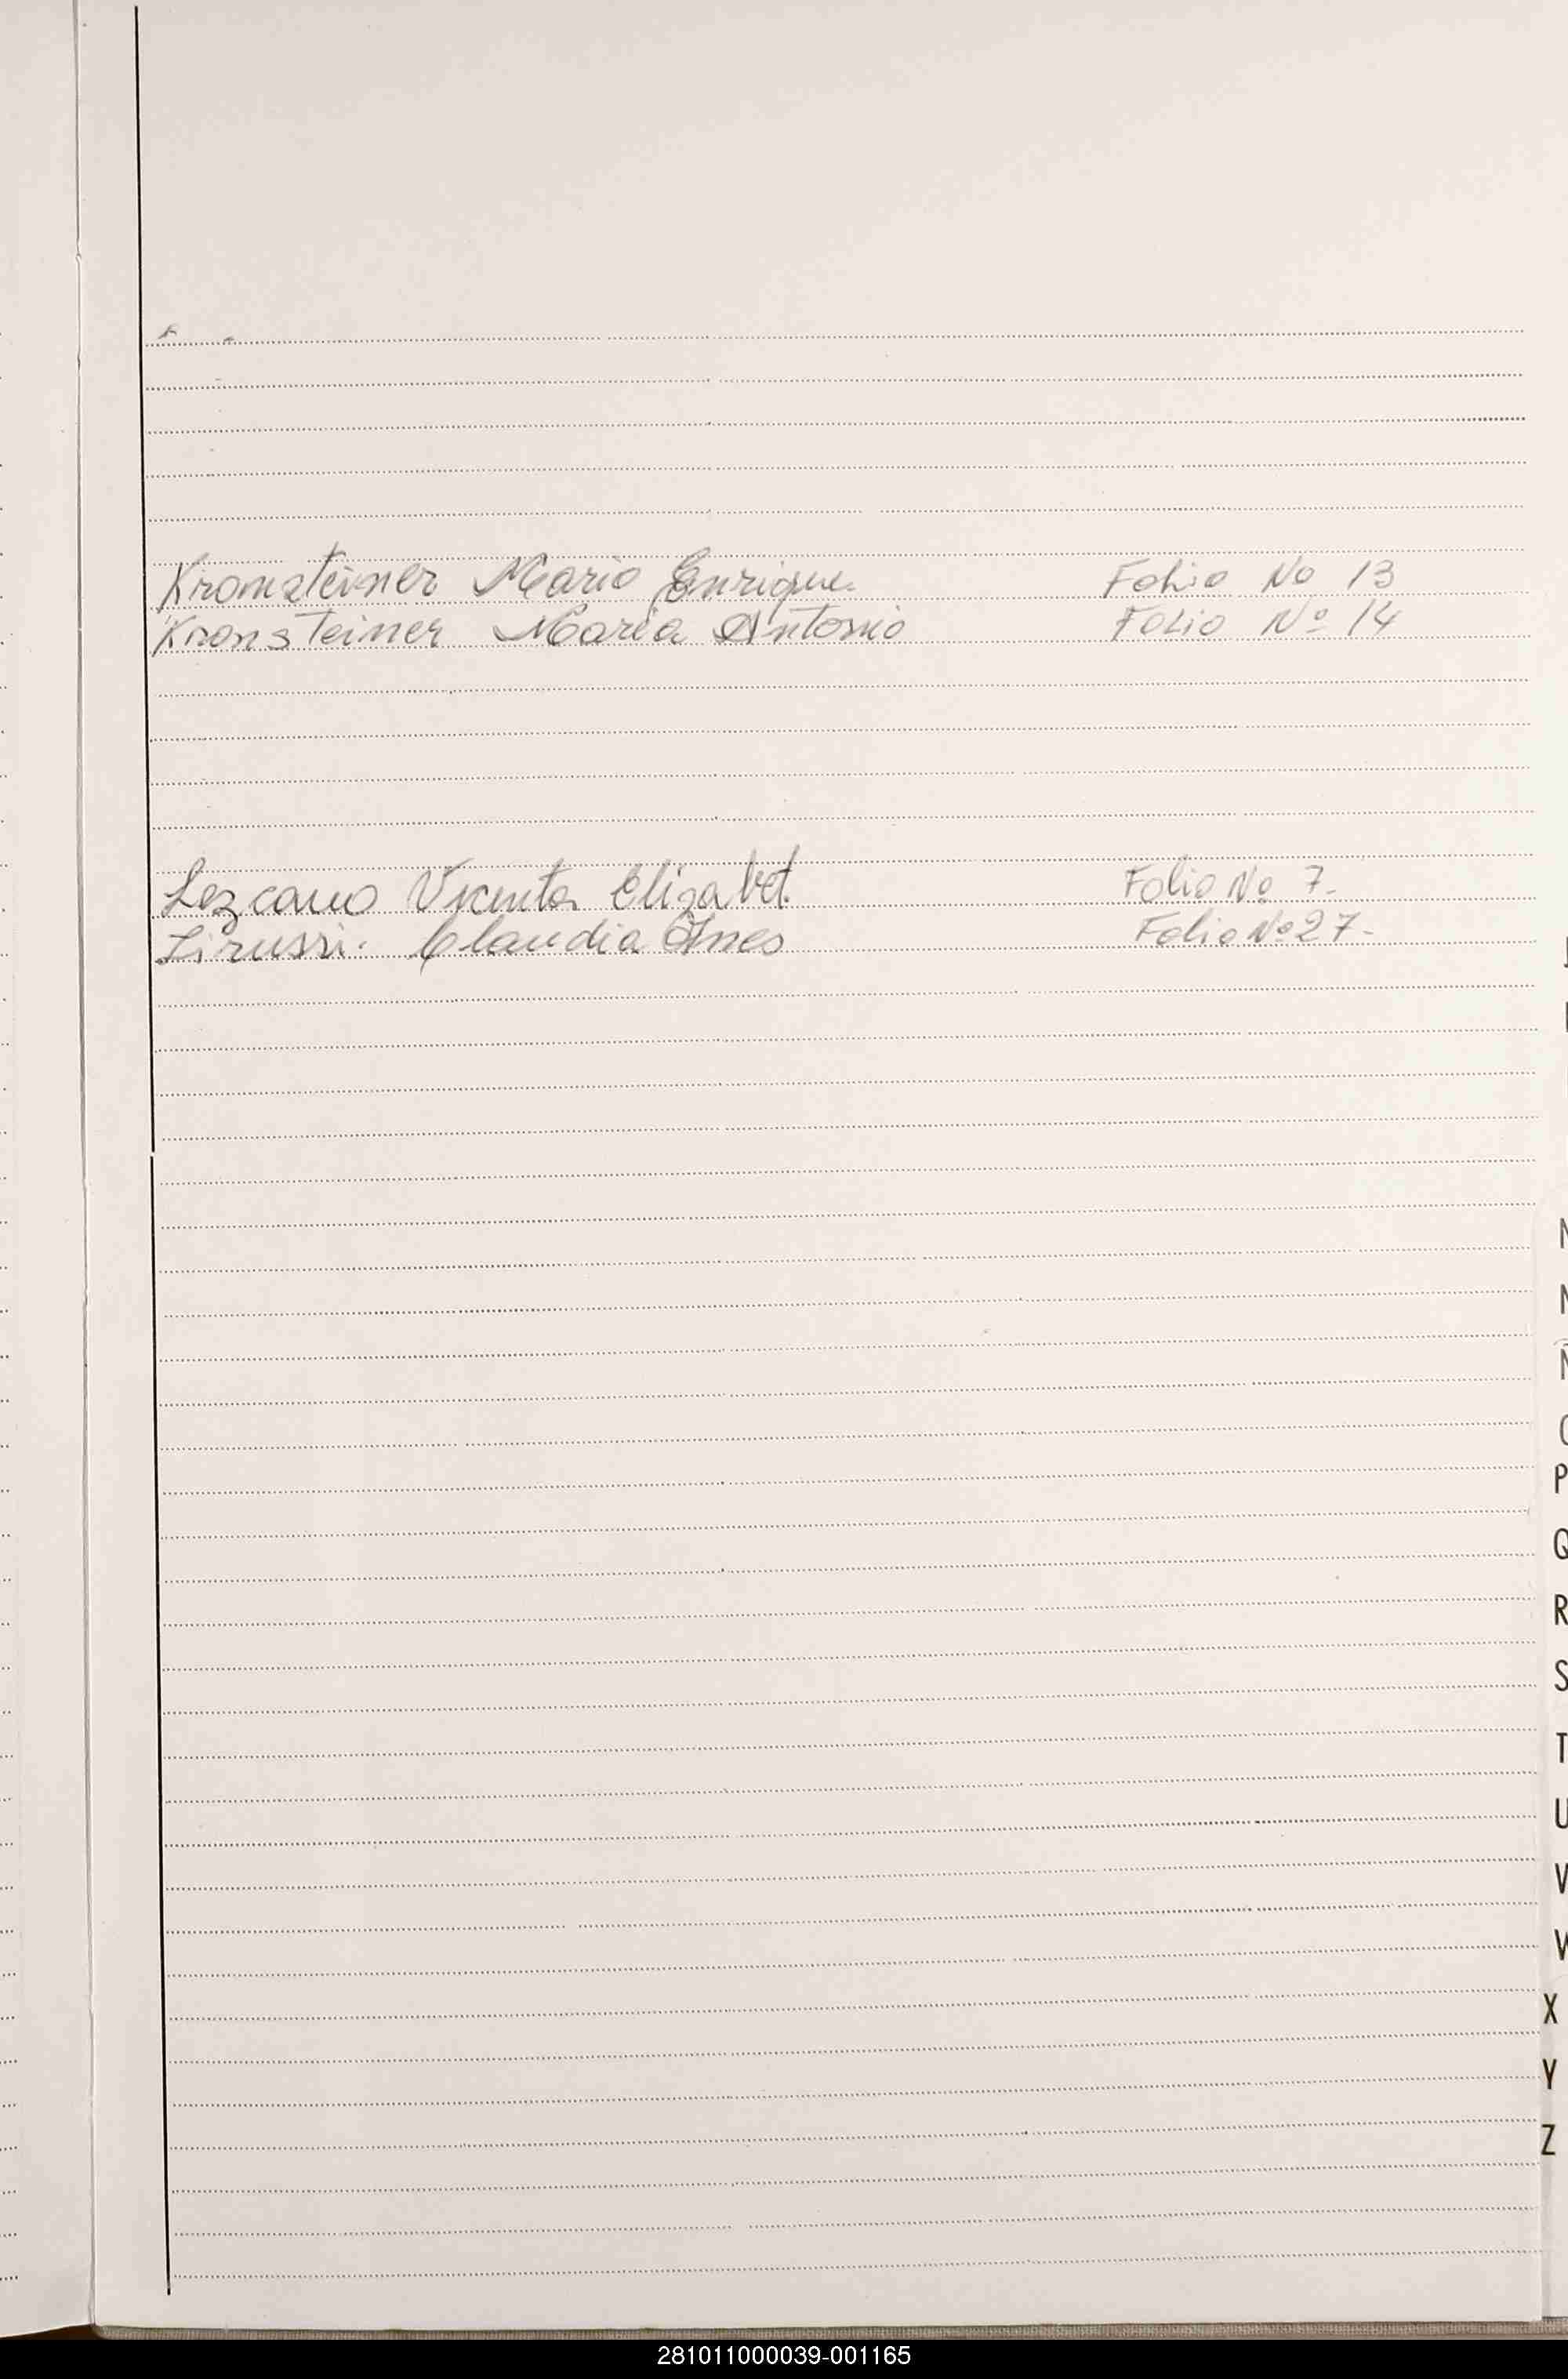 Kronsteiner Mario Enrique. Folio No 13
Kronsteiner Maria Antonio Folio Nº 14
Lezcano Vicenta Elizabet. Folio Nº 7.-
Lirussi. Claudia Ines Folio Nº 27.-
P
Q
R
S
T
U
V
X
Y
Z
281011000039-001165